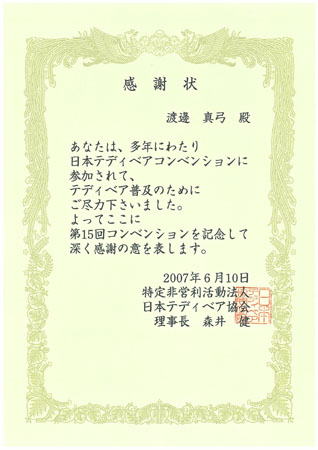 感謝状
渡邊 真弓 殿
あなたは、多年にわたり
日本テディベアコンベンションに
参加されて、
テディベア普及のために
ご尽力下さいました。
よってここに
第15回コンベンションを記念して
深く感謝の意を表します。
2007年6月10日
特定非営利活動法人
日本テディベア協会
理事長 森井 健